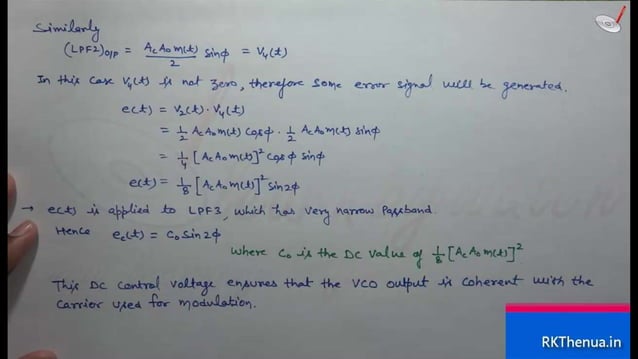 Similarly
(LPF2)O/P = AcAom(t)/2 sinϕ = V4(t)
In this case V4(t) is not zero, therefore some error signal will be generated.
e(t) = V2(t)·V4(t)
= 1/2 AcAom(t) Cosϕ · 1/2 AcAom(t) sinϕ
= 1/4 [AcAom(t)]² Cosϕ sinϕ
e(t) = 1/8 [AcAom(t)]² Sin2ϕ
→ e(t) is applied to LPF3, which has very narrow Passband.
Hence ec(t) = Co Sin2ϕ
Where Co is the DC value of 1/8 [AcAom(t)]²
This DC Control voltage ensures that the VCO output is Coherent with the
Carrier used for modulation.
RKThenua.in